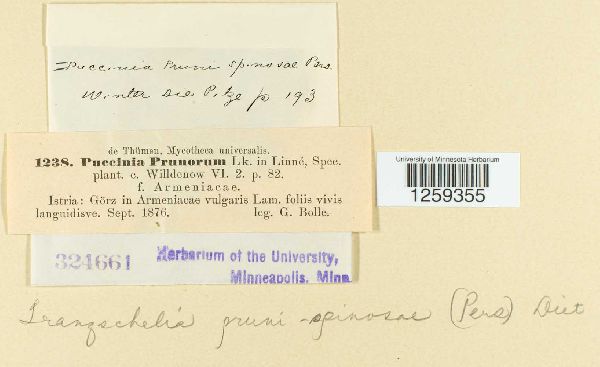 =Puccinia Pruni spinosae Pers.
Winter Die Pilze p 193
de Thümen, Mycotheca universalis.
1238. Puccinia Prunorum Lk. in Linné, Spec.
plant. c. Willdenow VI. 2. p. 82.
f. Armeniacae.
Istria: Görz in Armeniacae vulgaris Lam. foliis vivis
languidisve. Sept. 1876. leg. G. Bolle.
University of Minnesota Herbarium
1259355
324661 Herbarium of the University,
Minneapolis, Minn.
Tranzschelia pruni-spinosae (Pers) Diet